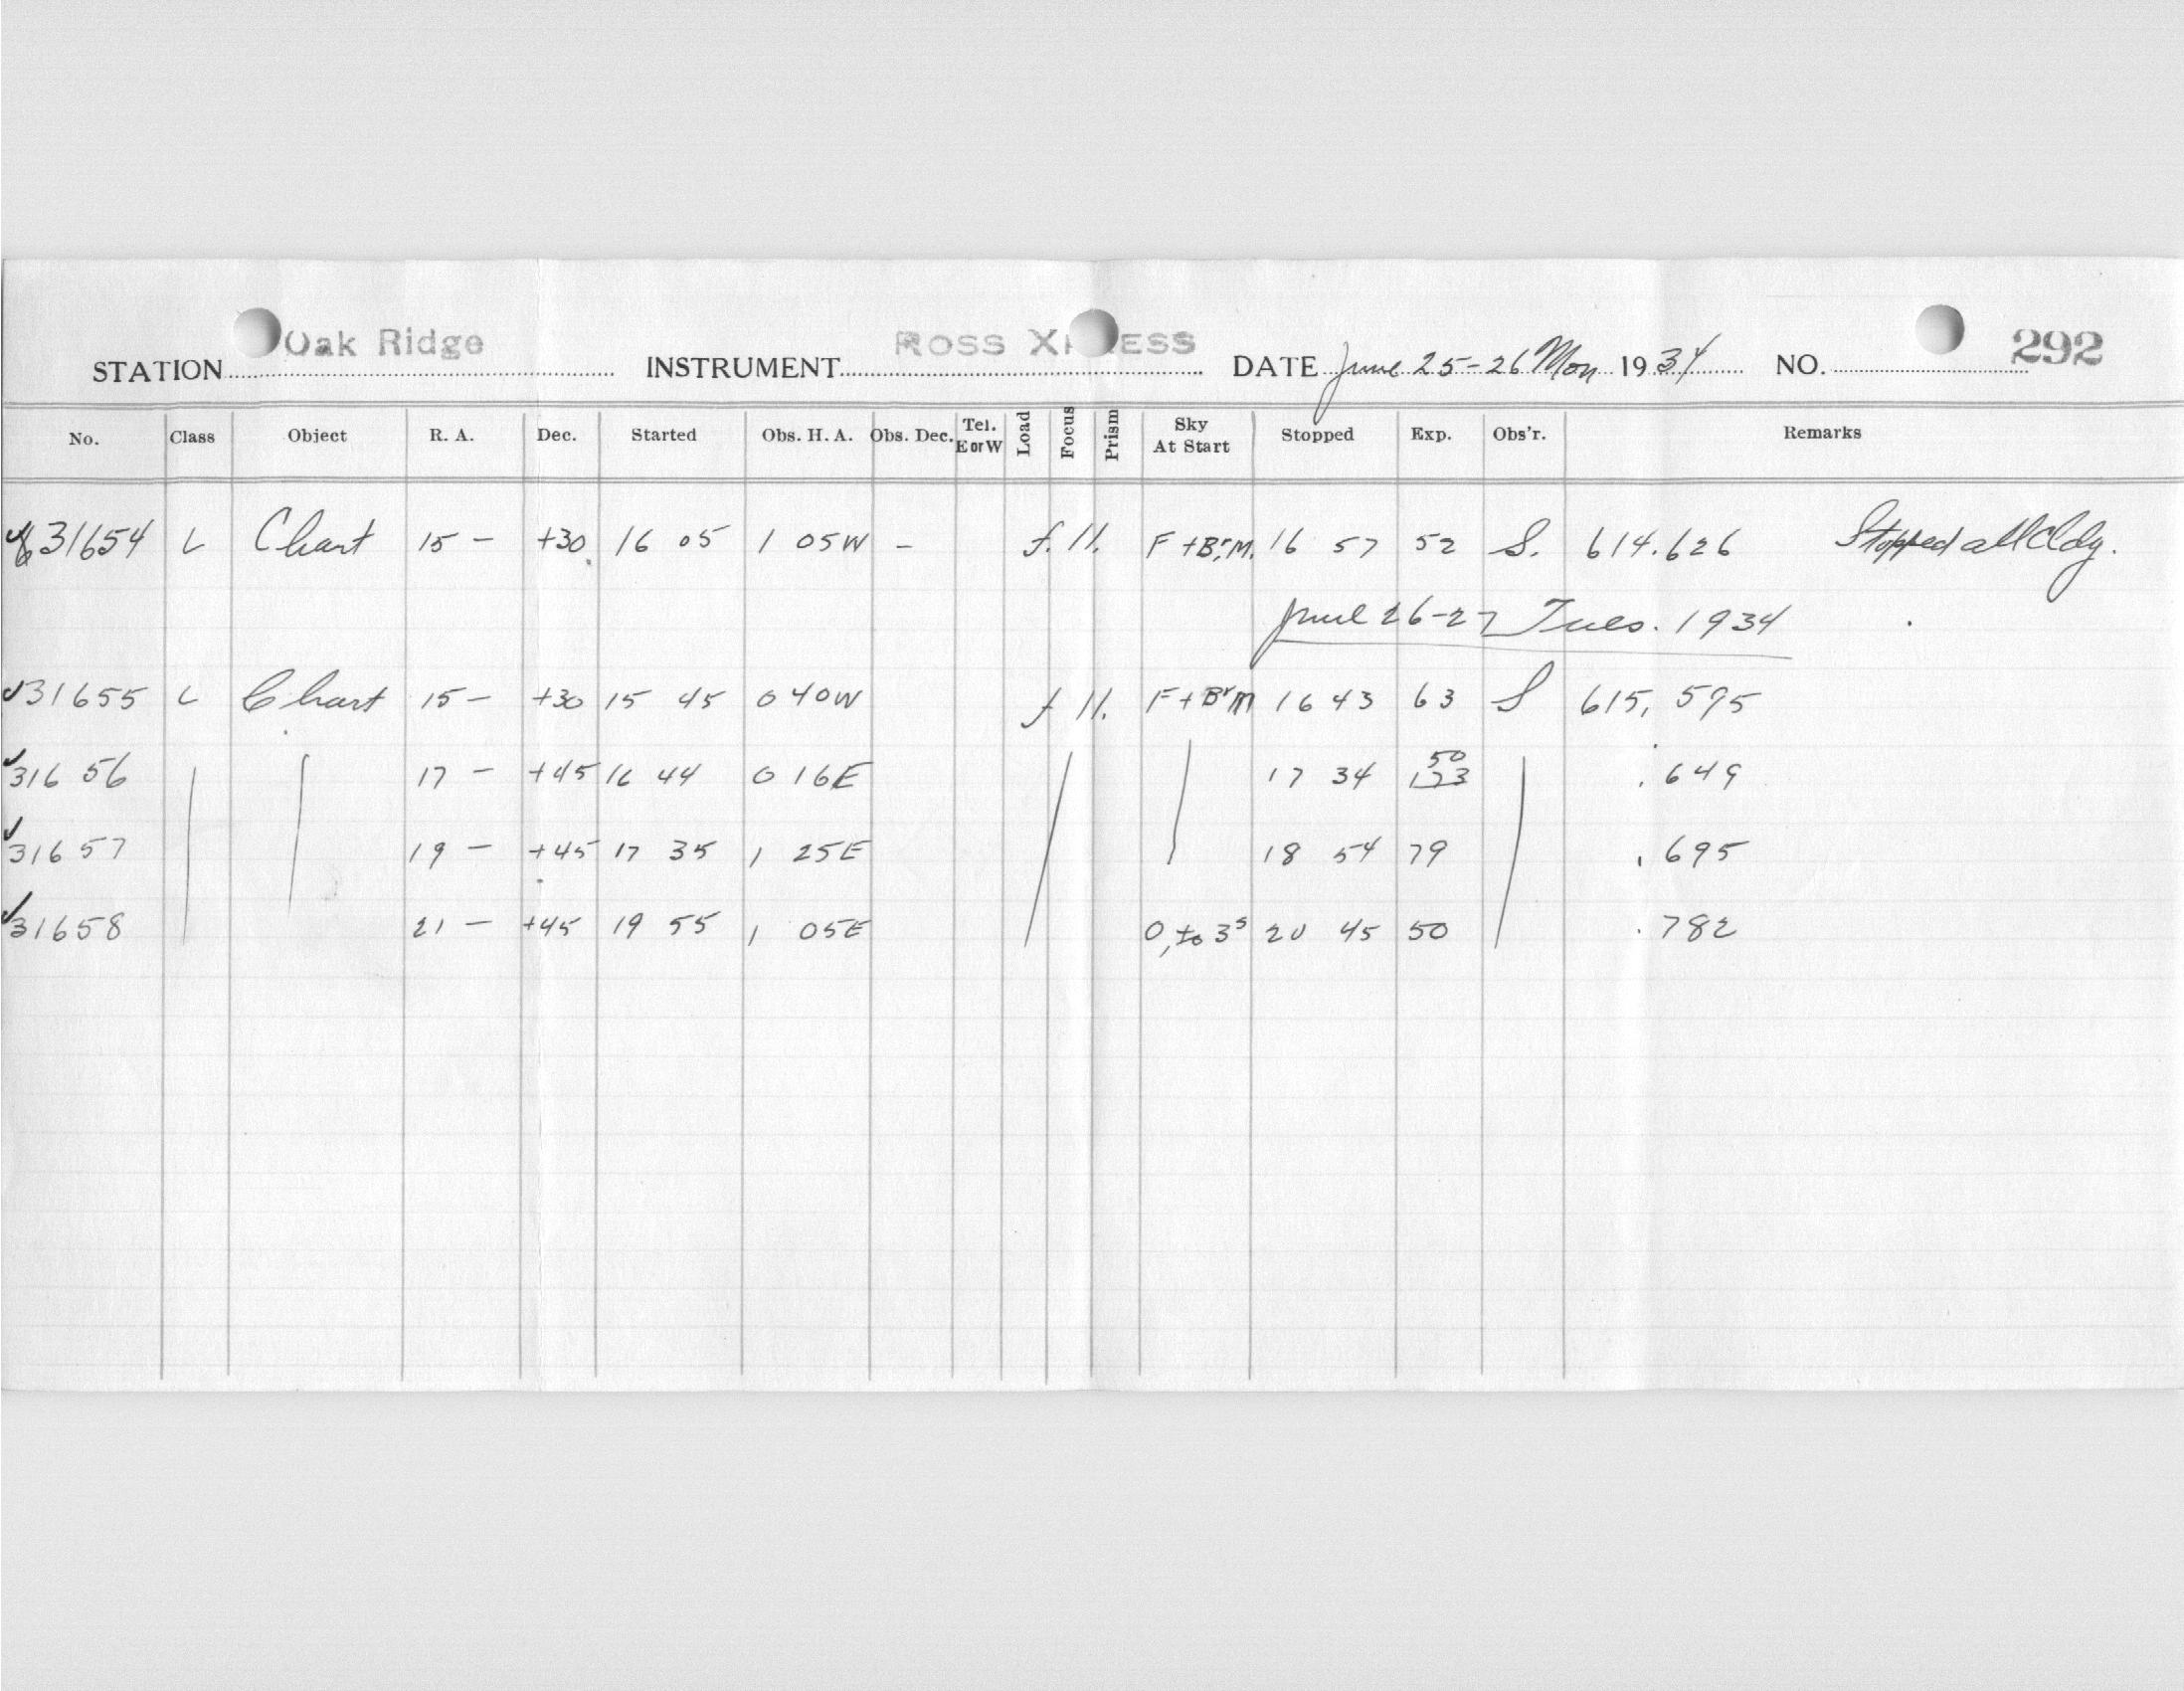 STATION Oak Ridge INSTRUMENT ROSS X ESS DATE June 25-26 Mon 1934 NO. 292
No. Class Object R. A. Dec. Started Obs. H. A. Obs. Dec. Tel. E or W Load Focus Prism Sky At Start Stopped Exp. Obs'r. Remarks
31654 L Chart 15 - +30 16 05 1 05W - f. 11. F + Br. M. 16 57 52 S. 614.626 Stopped all Cldy.
June 26-27 Tues. 1934
31655 L Chart 15 - +30 15 45 0 40W f 11. F + Br M 16 43 63 S 615, 595
31656 17 - +45 16 44 0 16E 17 34 50 .649
31657 19 - +45 17 35 1 25E 18 54 79 .695
31658 21 - +45 19 55 1 05E 0, to 3s 20 45 50 .782